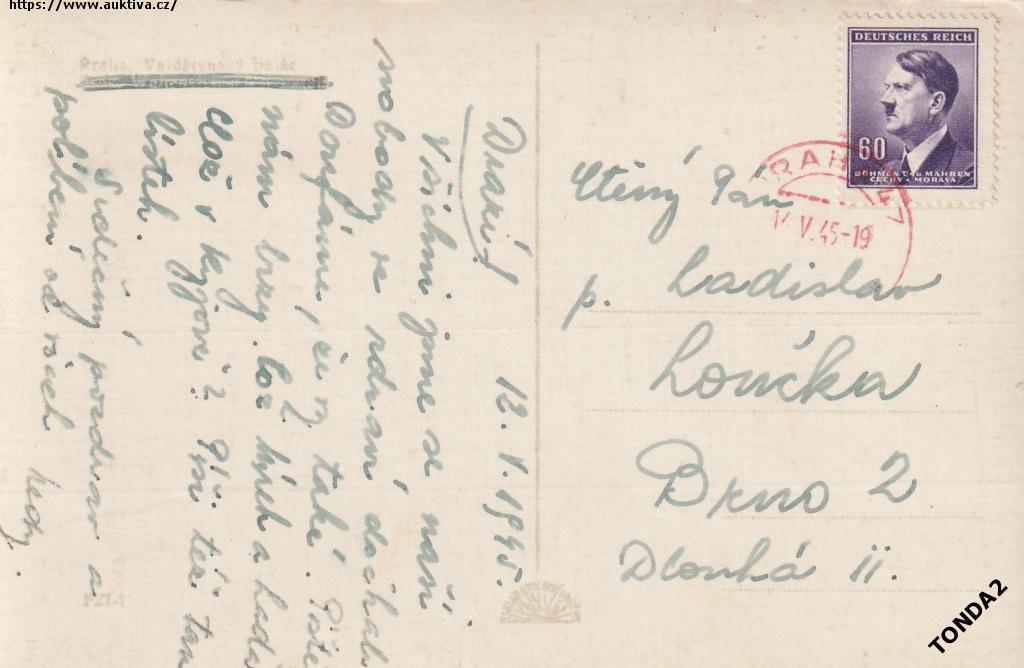 https://www.auktiva.cz/
Praha, Valdštýnský palác
Drazí!
12. V. 1945.
Všichni jsme se naší
svobody ve zdraví dočkali
Doufáme, že vy také. Pište
nám brzy.
v Kyjově? Piš též tam
lístek.
Srdečný pozdrav a
políbení od všech
DEUTSCHES REICH
60
BÖHMEN UND MÄHREN
ČECHY A MORAVA
V.45-19
Ctěný Pán
p. Ladislav
Loučka
Brno 2
Dlouhá 11.
TONDA2